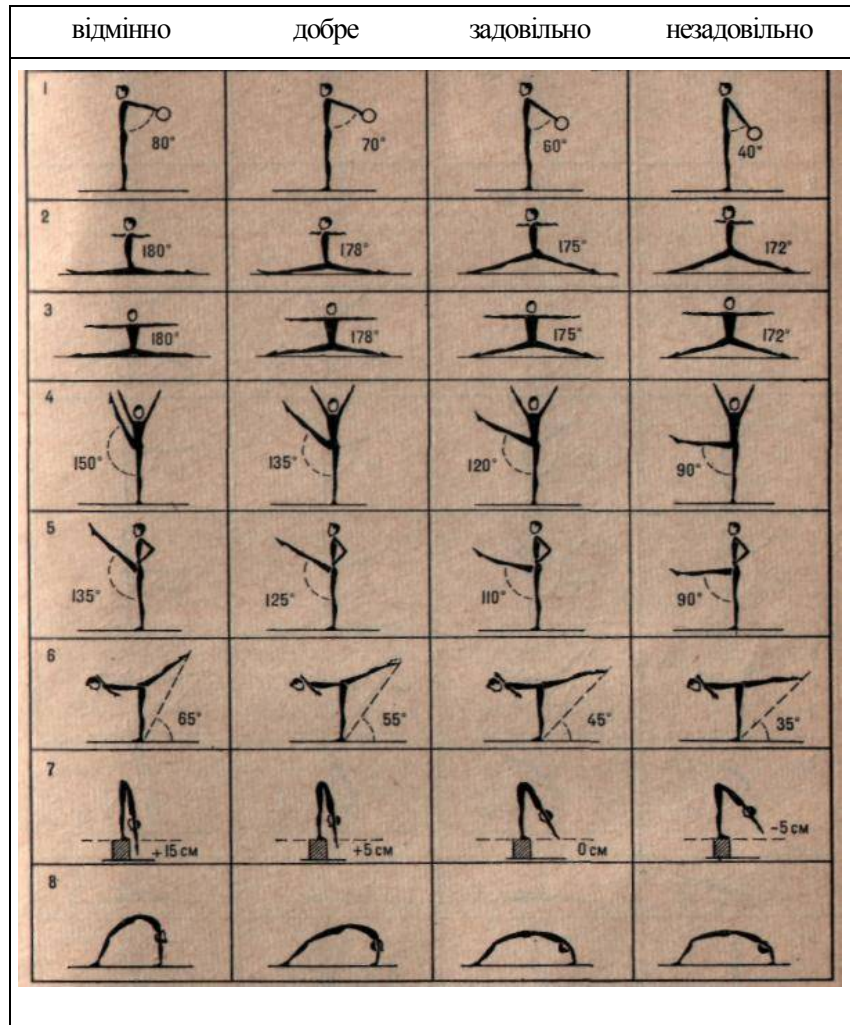 відмінно добре задовільно незадовільно
1 80° 70° 60° 40°
2 180° 178° 175° 172°
3 180° 178° 175° 172°
4 150° 135° 120° 90°
5 135° 125° 110° 90°
6 65° 55° 45° 35°
7 +15 см +5 см 0 см -5 см
8